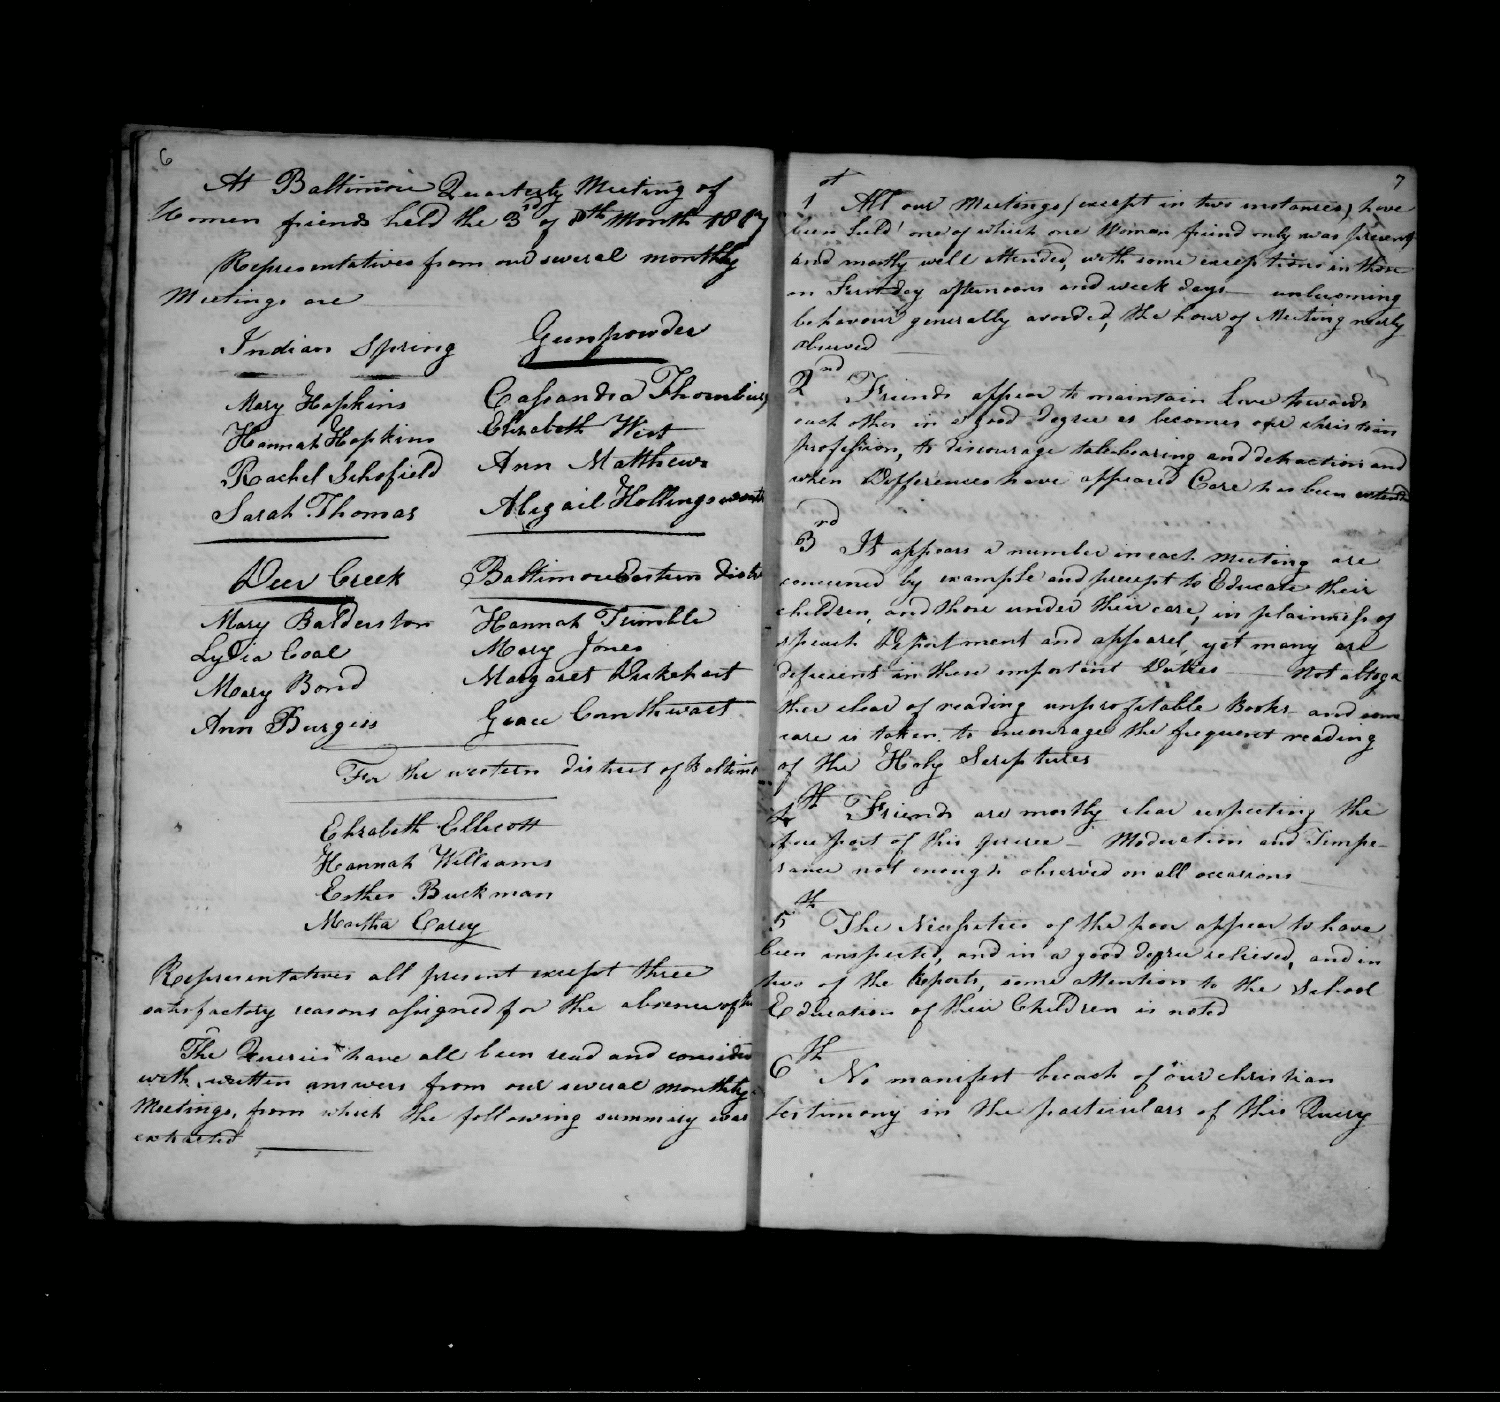 6
At Baltimore Quarterly Meeting of
Women friends held the 3rd of 8th Month 1807
Representatives from our several monthly
Meetings are
Indian Spring
Mary Hopkins
Hannah Hopkins
Rachel Schofield
Sarah Thomas
Gunpowder
Cassandra Thornburg
Elizabeth West
Ann Matthews
Abigail Hollingsworth
Deer Creek
Mary Balderston
Lydia Coal
Mary Bond
Ann Burgess
Baltimore Eastern district
Hannah Trimble
Mary Jones
Margaret Dukehart
Grace Cornthwait
For the western district of Baltimore
Elizabeth Ellicott
Hannah Williams
Esther Buckman
Martha Carey
Representatives all present except three
satisfactory reasons assigned for the absence of
The Queries have all been read and consider
with written answers from our several monthly
Meetings, from which the following summary was
extracted
7
1st All our Meetings (except in two instances) have
been held one of which one Woman friend only was present
and mostly well attended, with some exceptions in those
on First day afternoons and week days unbecoming
behaviour generally avoided, the hour of Meeting nearly
observed
2nd Friends appear to maintain Love towards
each other in a good degree as becomes our christian
profession, to discourage talebearing and detraction and
when Differences have appeared Care has been extended
3rd It appears a number in each meeting are
concerned by example and precept to Educate their
children, and those under their care, in plainness of
speech Deportment and apparel, yet many are
deficient in these important Duties Not altoge
ther clear of reading unprofitable Books and some
care is taken to encourage the frequent reading
of the Holy Scriptures
4th Friends are mostly clear respecting the
fore part of this queree - Moderation and Tempe-
rance not enough observed on all occasions
5th The Necessities of the poor appear to have
been inspected, and in a good degree relieved, and in
two of the Reports, some attention to the School
Education of their Children is noted
6th No manifest breach of our christian
testimony in the particulars of this Query